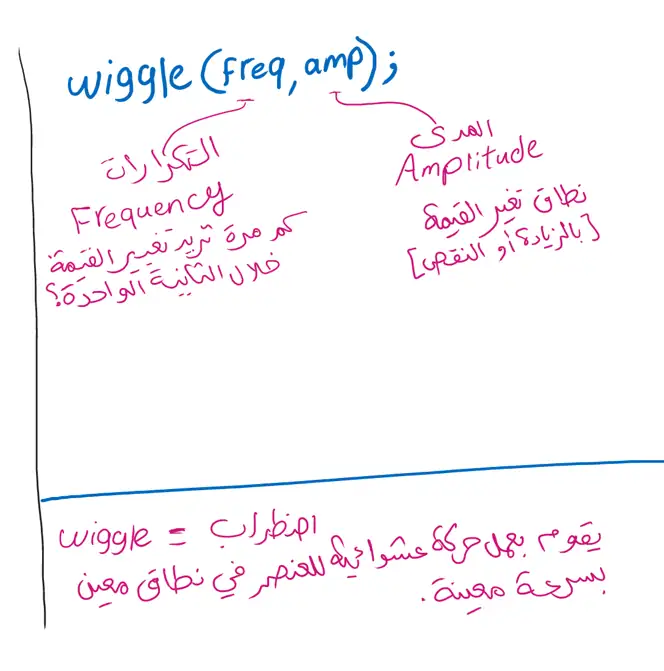 wiggle(freq, amp);
التكرارات
Frequency
كم مرة تريد تغيير القيمة
خلال الثانية الواحدة؟
المدى
Amplitude
نطاق تغير القيمة
[بالزيادة أو النقص]
wiggle = اضطراب
يقوم بعمل حركة عشوائية للعنصر في نطاق معين
بسرعة معينة.